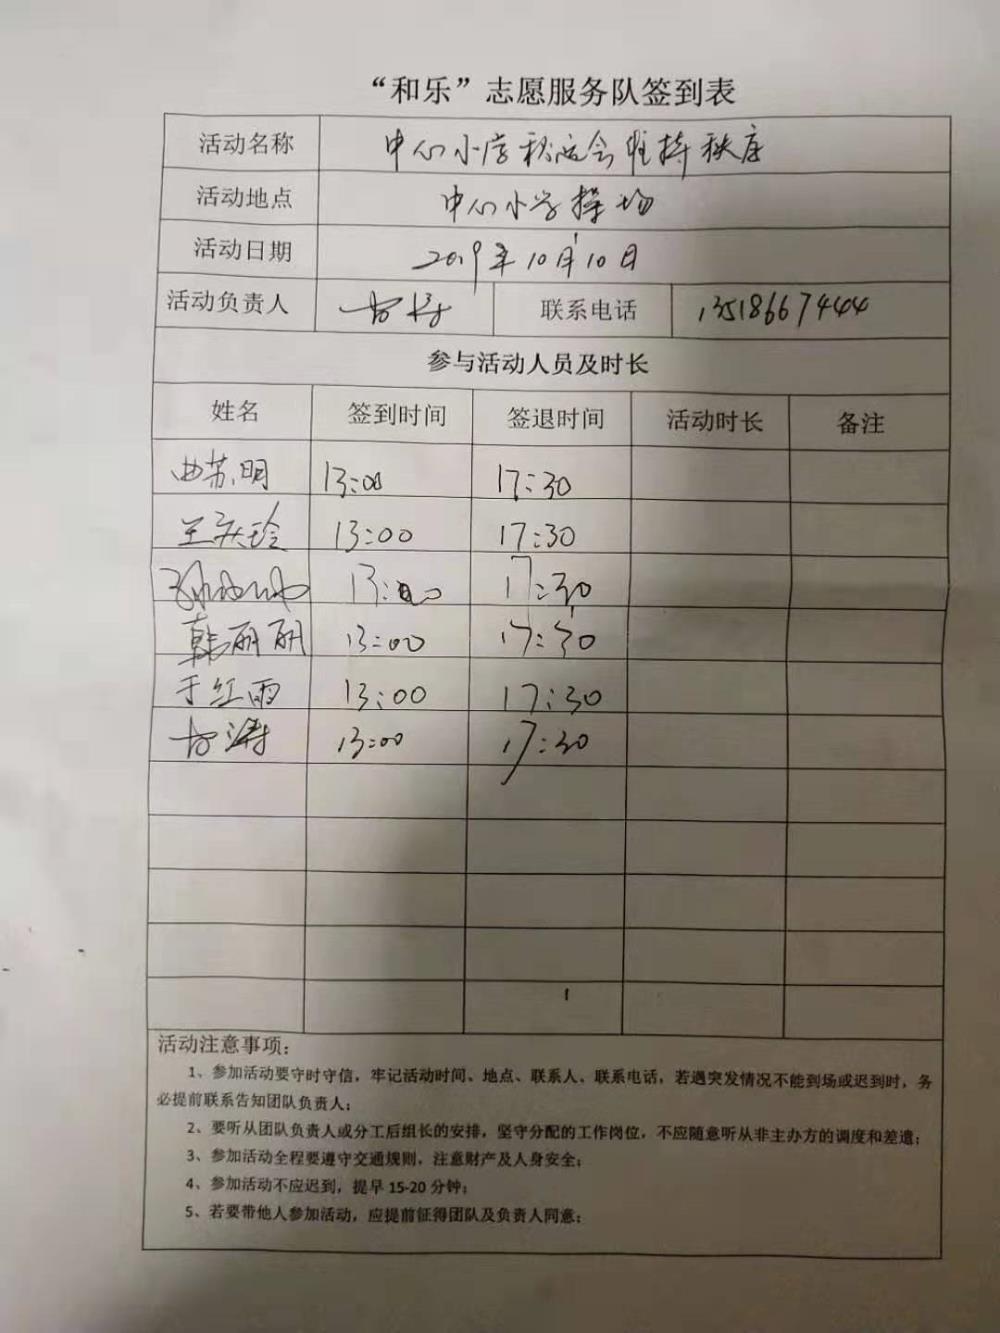 “和乐”志愿服务队签到表
活动名称 中心小学秋运会维持秩序
活动地点 中心小学操场
活动日期 2019年10月10日
活动负责人 联系电话 13518667444
参与活动人员及时长
姓名 签到时间 签退时间 活动时长 备注
曲苏明 13:00 17:30
王庆玲 13:00 17:30
13:00 17:30
韩丽丽 13:00 17:30
于红雨 13:00 17:30
涛 13:00 17:30
活动注意事项：
1、参加活动要守时守信，牢记活动时间、地点、联系人、联系电话，若遇突发情况不能到场或迟到时，务
必提前联系告知团队负责人；
2、要听从团队负责人或分工后组长的安排，坚守分配的工作岗位，不应随意听从非主办方的调度和差遣；
3、参加活动全程要遵守交通规则，注意财产及人身安全；
4、参加活动不应迟到，提早 15-20 分钟；
5、若要带他人参加活动，应提前征得团队及负责人同意；